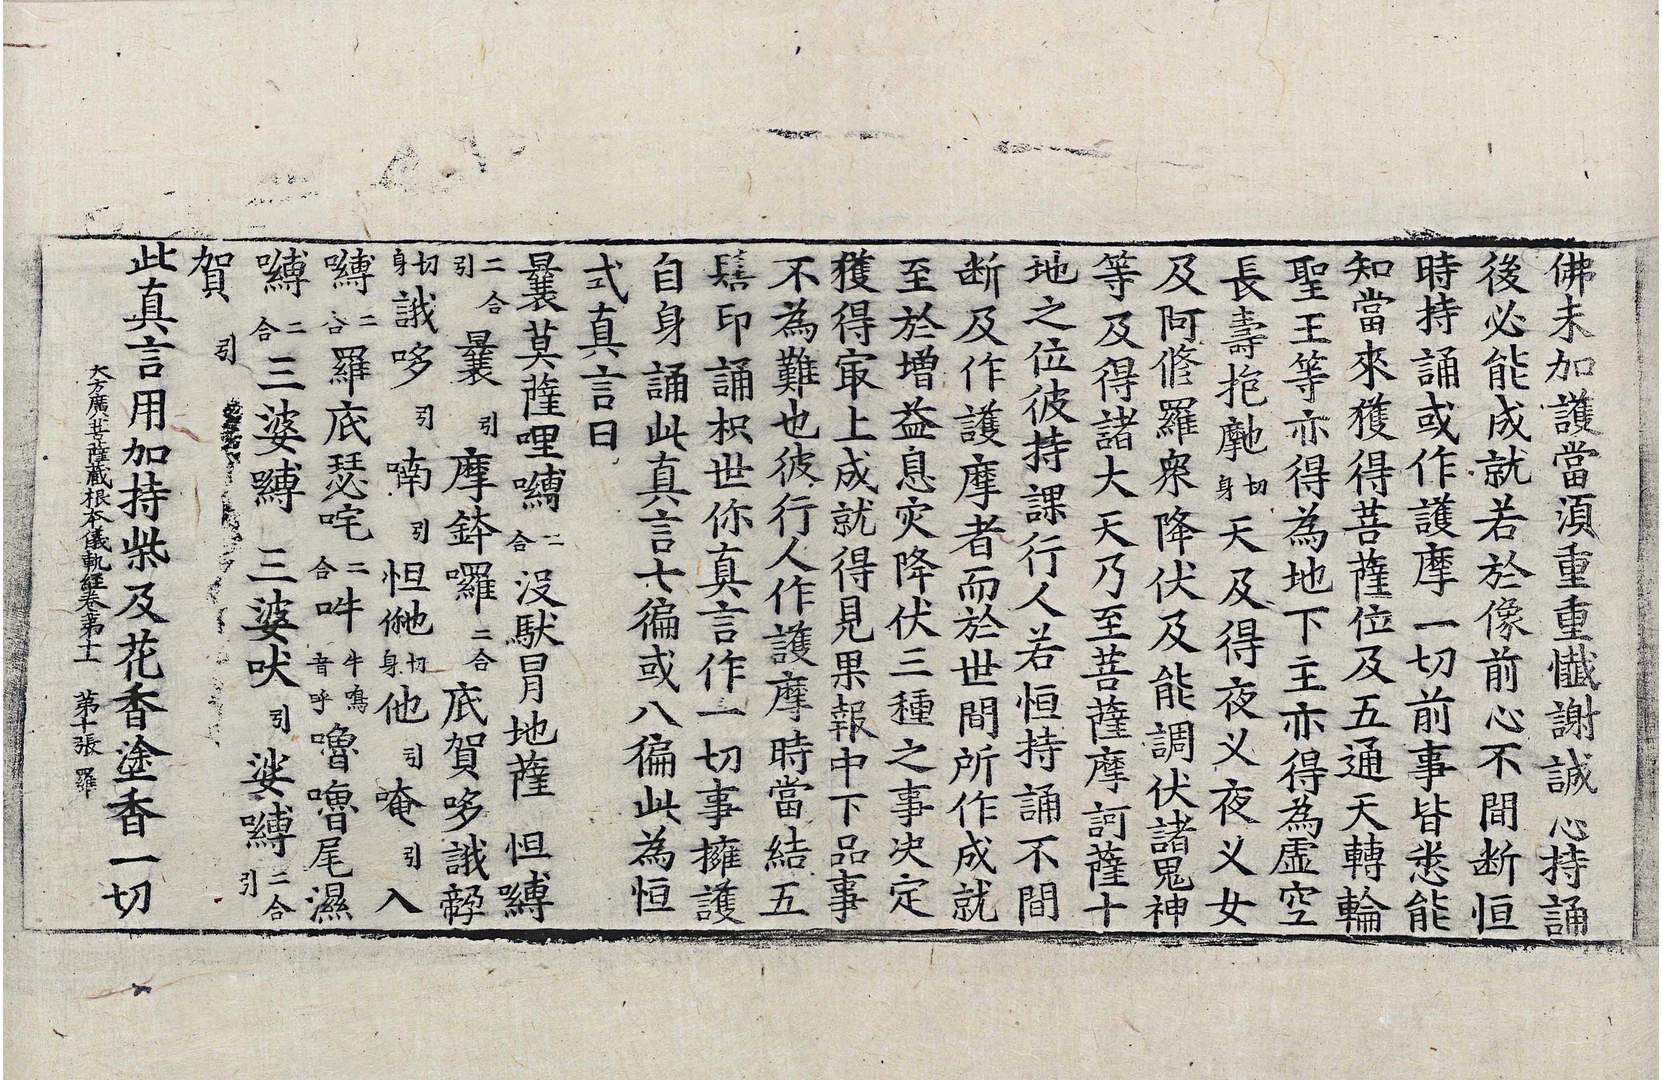 佛未加護當湏重重懺謝誠心持誦
後必能成就若於像前心不間断恒
時持誦或作護摩一切前事皆悉能
知當來獲得菩薩位及五通天轉輪
聖王等亦得為地下主亦得為虛空
長壽抱䭾切身天及得夜叉夜叉女
及阿修羅衆降伏及能調伏諸鬼神
等及得諸大天乃至菩薩摩訶薩十
地之位彼持課行人若恒持誦不間
断及作護摩者而於世間所作成就
至於增益息灾降伏三種之事决定
獲得㝡上成就得見果報中下品事
不為難也彼行人作護摩時當結五
髻印誦枳世你真言作一切事擁護
自身誦此真言七徧或八徧此為恒
式真言曰
曩莫薩哩嚩二合沒馱冒地薩怛嚩
二合引曩引摩鉢囉二合底賀哆誐
切身誐哆引喃引怛他切身他引唵引入
嚩二合羅底瑟咤二合吽牛鳴音呼嚕嚕尾濕
嚩二合三婆嚩三婆吠引娑嚩二合引
賀引
此真言用加持柴及花香塗香一切
大方廣菩薩藏根本儀軌經卷第十一 第十張 羅